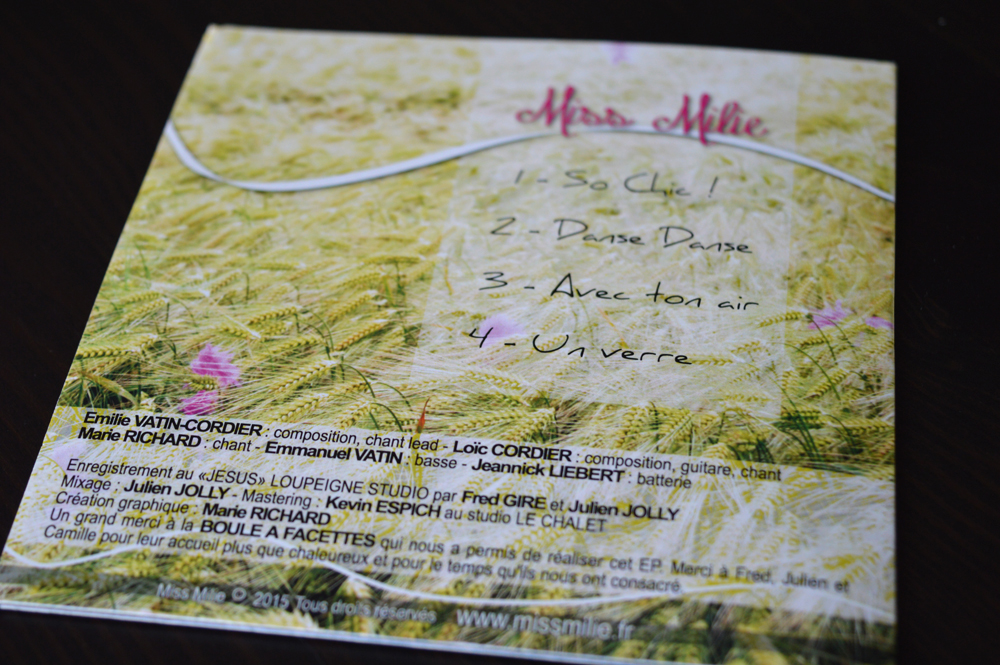 Miss Milie
1 - So Chic !
2 - Danse Danse
3 - Avec ton air
4 - Un verre
Emilie VATIN-CORDIER : composition, chant lead - Loïc CORDIER : composition, guitare, chant
Marie RICHARD : chant - Emmanuel VATIN : basse - Jeannick LIEBERT : batterie
Enregistrement au «JESUS» LOUPEIGNE STUDIO par Fred GIRE et Julien JOLLY
Mixage : Julien JOLLY - Mastering : Kevin ESPICH au studio LE CHALET
Création graphique : Marie RICHARD
Un grand merci à la BOULE A FACETTES qui nous a permis de réaliser cet EP. Merci à Fred, Julien et
Camille pour leur accueil plus que chaleureux et pour le temps qu'ils nous ont consacré
Miss Milie © 2015 Tous droits réservés www.missmilie.fr